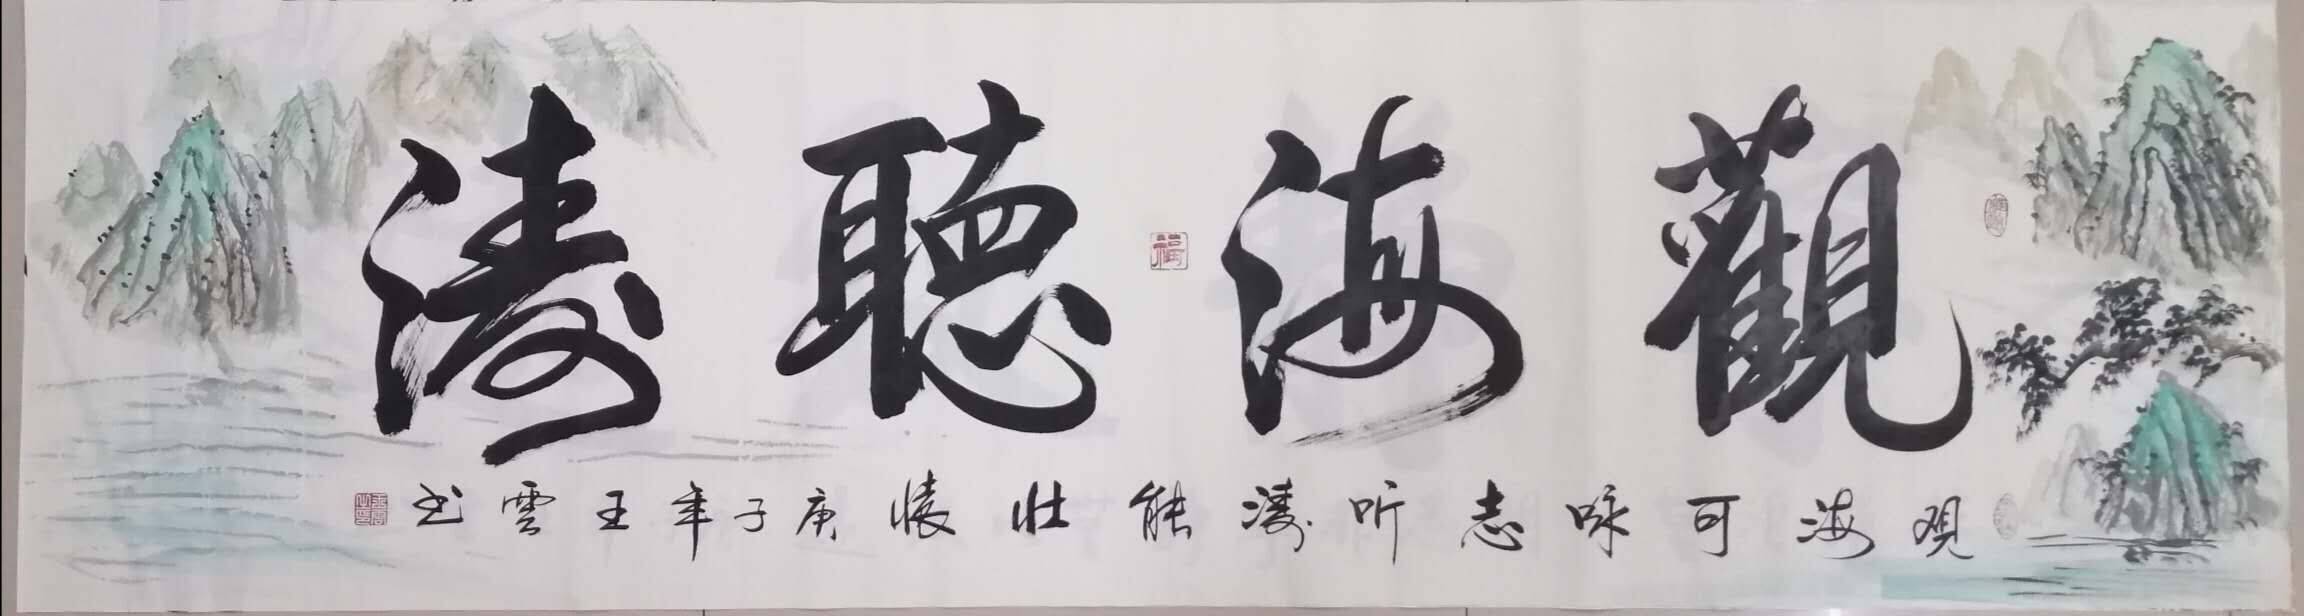 觀海聽濤
观海可咏志听涛能壮懐庚子年王雲书
福